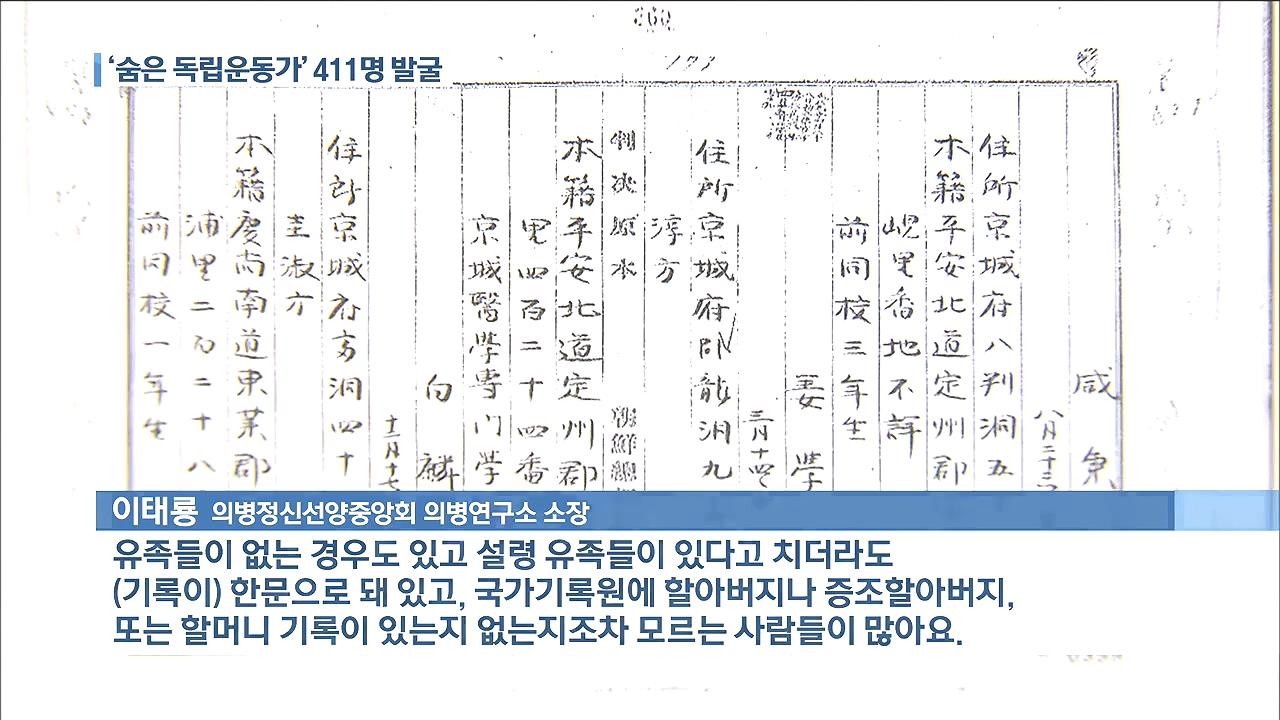 ‘숨은 독립운동가’ 411명 발굴
咸
八月二十三
住所京城府八判洞五
本籍平安北道定州郡
峴里番地不詳
前同校三年生
姜 學
三月十四
住所京城府臥龍洞九
淳方
判決原本 朝鮮總
本籍平安北道定州郡
里四百二十四番
京城醫學專門學
白 麟
十二月十七
住所京城府 洞四十
圭淑方
本籍慶尚南道東萊郡
浦里二百二十八
前同校一年生
이태룡 의병정신선양중앙회 의병연구소 소장
유족들이 없는 경우도 있고 설령 유족들이 있다고 치더라도
(기록이) 한문으로 돼 있고, 국가기록원에 할아버지나 증조할아버지,
또는 할머니 기록이 있는지 없는지조차 모르는 사람들이 많아요.